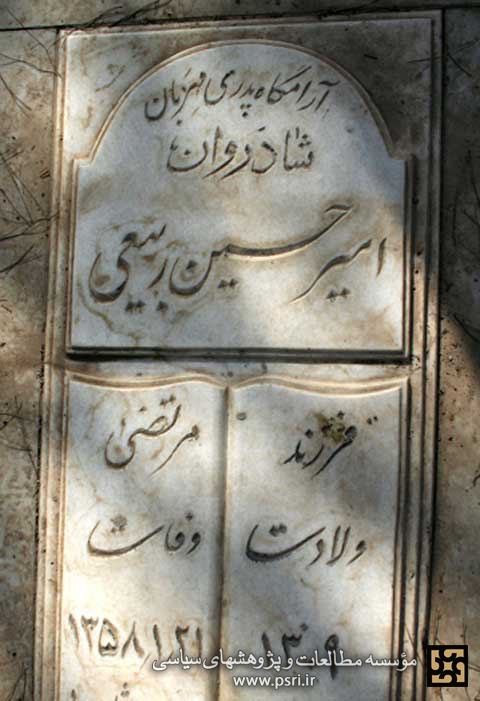 آرامگاه پدری مهربان
شادروان
امیر حسین ربیعی
فرزند مرتضی
ولادت وفات
۱۳۰۹ ۱۳۵۸/۱/۲۱
مؤسسه مطالعات و پژوهشهای سیاسی
www.psri.ir